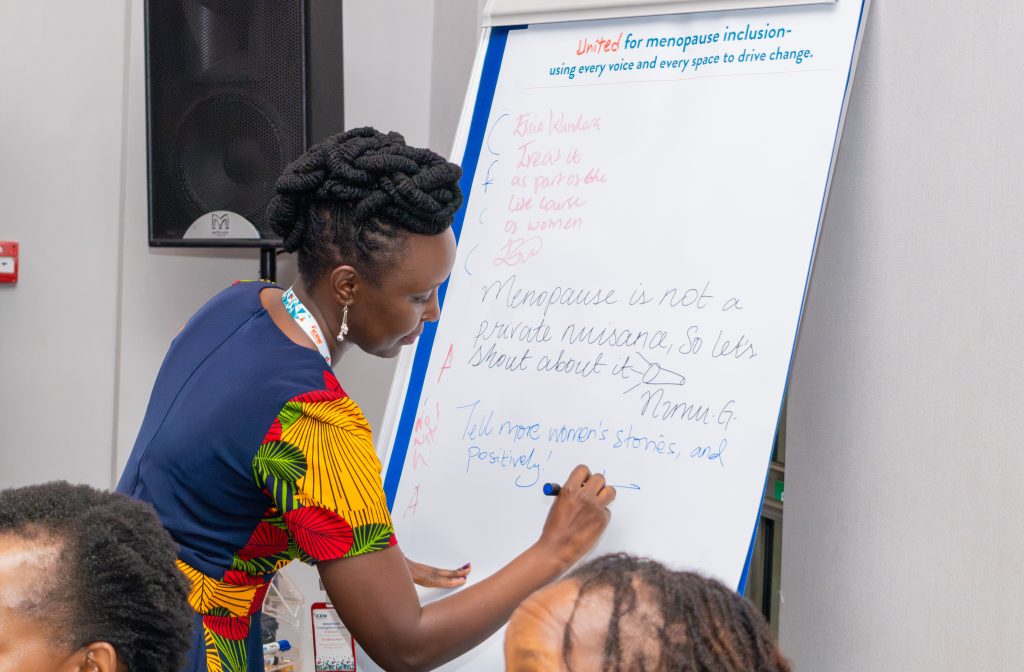 United for menopause inclusion-
using every voice and every space to drive change.
Elsie Wandera
Treat it
as part of the
life course
of women
Menopause is not a
private nuisance, So let's
shout about it
Nimu. G.
Tell more women's stories, and
positively!
A
A